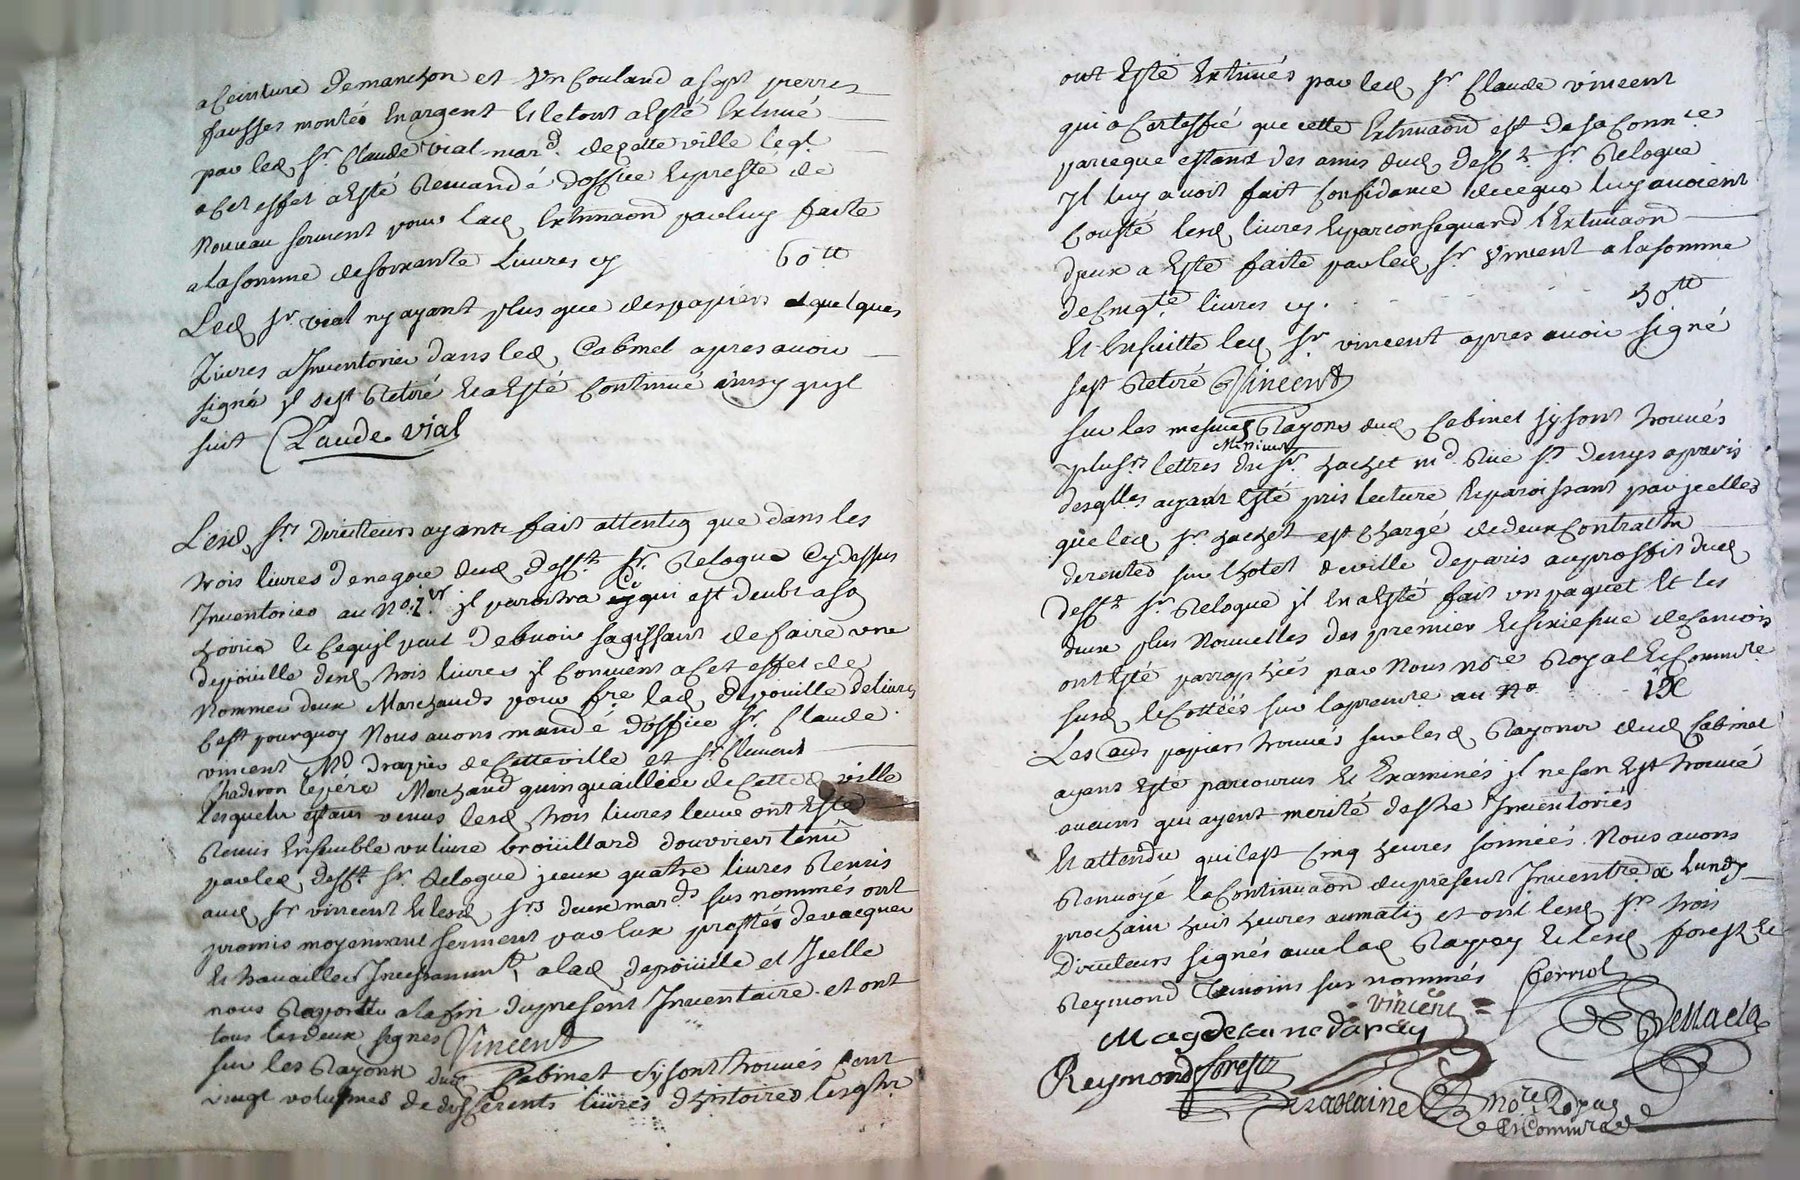 a Ceinture de manchon et Un Couland a sept pierres
fausses montés En argent Et le tout a Esté Extimé
par led. Sr. Claude Vial mard. de cette ville leql.
a Cet effet a Esté Remandé d'office Et preste de
Nouveau serment pour lad. Extimaon par luy faite
a la somme de soixante Livres cy 60tt
Led. Sr. Vial ny ayant plus que des papiers et quelques
Livres a Inventorier dans led. Cabinet apres avoir
signé il s'est Retiré Et a Esté Continué ainsy qu'yl
suit Claude Vial
Lesd. Srs Directeurs ayants fait attention que dans les
trois livres de negoce dud. defft. Sr. Relogue Cy dessus
Inventories au No. 7. il paroitra Ce qui est deubt a so
hoirie le Ce qu'yl peut debvoir s'agissant de faire une
depoüille desd. trois livres il Convient a Cet effet de
Nommer deux Marchands pour fre. lad. depoüille de livres
C'est pourquoy Nous avons mandé d'office Sr. Claude
vincent Md. drapier de Cette ville et Sr. Clement
Chaderon le père Marchand quinquaillier de Cette d. ville
lesquels estans venus lesd. trois livres leur ont Esté
Remis Ensemble un livre broüillard d'ouvriers tenu
par led. defft. Sr. Relogue jceux quatre livres Remis
aud. Sr. vincent Et lesd. Srs. deux mards. sus nommés ont
promis moyennant serment par Eux prestés de vacquer
Et travailler Incessamment a lad. depoüille et Icelle
nous Raporter a la fin du present Inventaire et ont
tous les deux signes Vincent
sur les Rayons dud. Cabinet s'y sont trouvés Cent
vingt volumes de differents livres d'histoires lesqls.
ont Esté Extimés par led. Sr. Claude vincent
qui a Certeffié que cette Extimaon est de sa Connce
parceque estant des amis dud. defft. Sr. Relogue
Il luy avoit fait Confidance de ce que luy avoient
Cousté lesd. livres Et par consequand l'Extimaon
d'jceux a Esté faite par led. Sr. Vincent a la somme
de Cinqte. livres cy. 50tt
Et Ensuitte led. Sr. vincent apres avoir signé
s'est Retiré Vincent
Sur les mesmes Rayons dud. Cabinet s'y sont trouvés
plusrs lettres du Sr. hachet md. Rue St. Denys a paris
desqlles ayant Esté pris lecture Et paroissant par jcelles
que led. Sr. hachet est Chargé de deux Contracts
de rentes sur l'hotel de ville de paris au proffit dud.
defft. Sr. Relogue il En a Esté fait un paquet Et les
deux plus Nouvelles des premier Et sixiesme de Ce mois
ont Esté parraphées par Nous Nore. Royal Et Commre.
susd. Et Cottées sur la premre au No IX
Les autres papiers trouvés sur lesd. Rayons dud. Cabinet
ayans Esté parcourus Et Examinés jl ne s'en Est trouvé
aucuns qui ayent merité destre Inventoriés
Et attendu qu'il est Cinq heures sonnées. Nous avons
Renvoyé la Continuaon du present Inventre. a Lundy
prochain huit heures du matin et ont lesd. Srs. trois
Directeurs signés avec lad. Et lesd. forest Et
Reymond Témoins sus nommés Perriol
Vincent
Magdelaine
Reymond forest
Nore. Royal
Et Commre